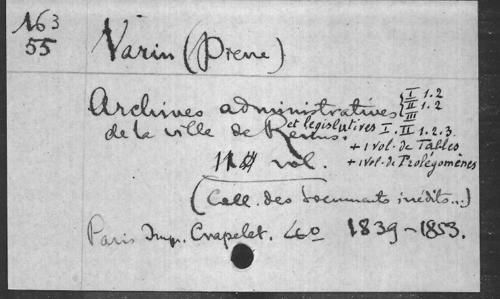 163
55
Varin (Pierre)
Archives administratives { I 1.2
II 1.2
III
et législatives I. II 1.2.3.
de la ville de Reims.
+ 1 vol. de Tables
+ 1 vol. de Prolégomènes
vol.
(Coll. des documents inédits...)
Paris Imp. Crapelet. 4o 1839-1853.